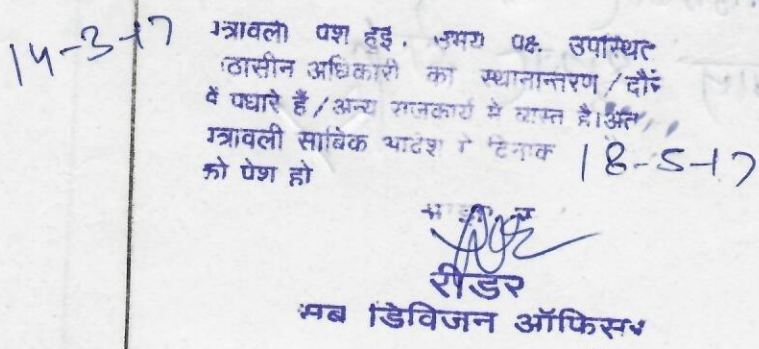 14-3-17
पत्रावली पेश हुई. उभय पक्ष. उपस्थित
पीठासीन अधिकारी का स्थानान्तरण / दौरे
में पधारे हैं / अन्य राजकार्य मे व्यस्त है। अतः
पत्रावली साबिक आदेश में दिनांक 18-5-17
को पेश हो
रीडर
सब डिविजन ऑफिसर